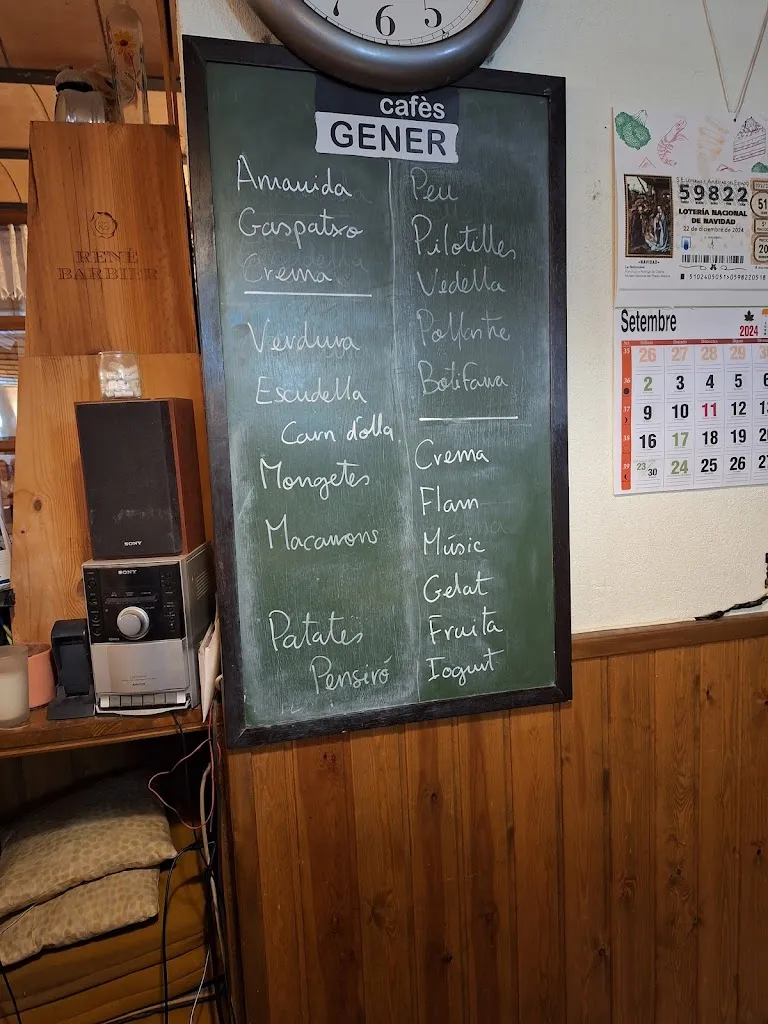 7 6 5
cafès
GENER
Amanida
Gaspatxo
Crema
Verdura
Escudella
Carn d'olla
Mongetes
Macarrons
Patates
Pensiró
Peu
Pilotilles
Vedella
Pollastre
Botifarra
Crema
Flam
Músic
Gelat
Fruita
Iogurt
RENÉ
BARBIER
SONY
SONY
59822
LOTERÍA NACIONAL
DE NAVIDAD
22 de diciembre de 2024
«NAVIDAD»
Setembre
2024
35 26 27 28 29
36 2 3 4 5 6
37 9 10 11 12
38 16 17 18 19
39 23 30 24 25 26